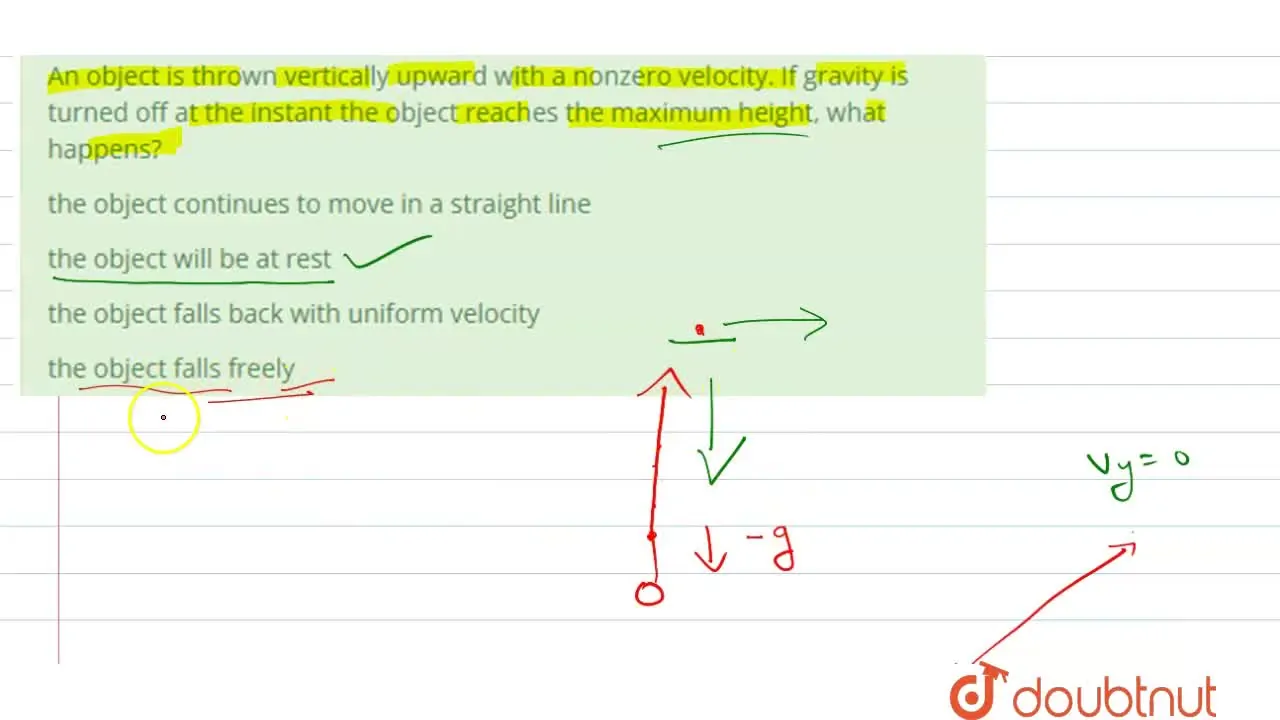 An object is thrown vertically upward with a nonzero velocity. If gravity is
turned off at the instant the object reaches the maximum height, what
happens?
the object continues to move in a straight line
the object will be at rest
the object falls back with uniform velocity
the object falls freely
Vy = 0
-g
doubtnut